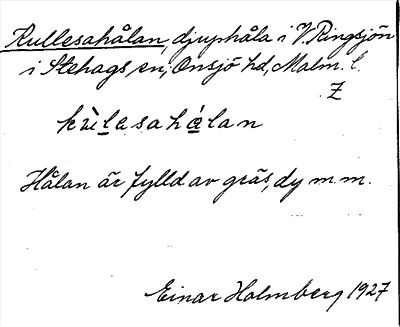 Kullesahålan, djuphåla i V. Ringsjön
i Stehags sn; Onsjö hd, Malm. l.
Z
kùlasahálan
Hålan är fylld av gräs, dy m.m.
Einar Holmberg 1927